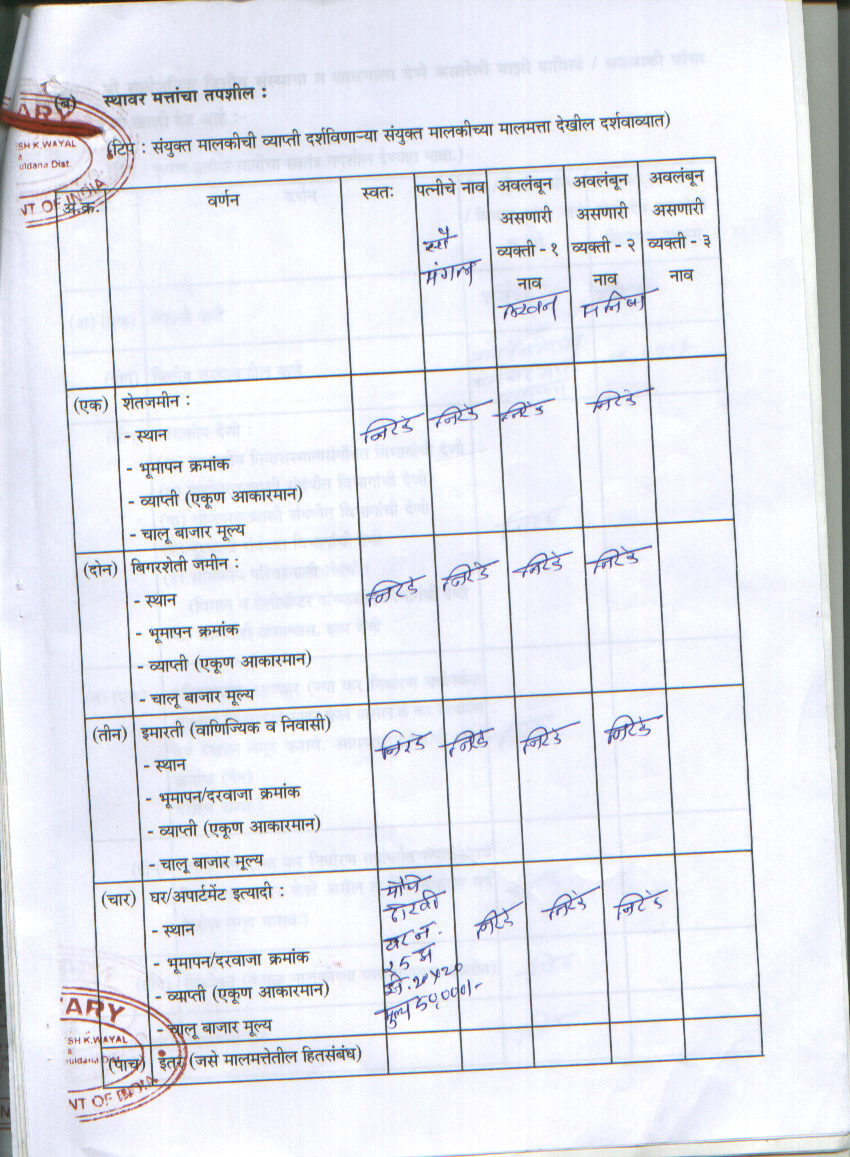 (ब) स्थावर मत्तांचा तपशील :
(टिप : संयुक्त मालकीची व्याप्ती दर्शविणाऱ्या संयुक्त मालकीच्या मालमत्ता देखील दर्शवाव्यात)
ARY
SH K.WAYAL
uldana Dist.
NT OF INDIA
अ.क्र. वर्णन स्वतः पत्नीचे नाव अवलंबून अवलंबून अवलंबून
असणारी असणारी असणारी
सौ व्यक्ती - १ व्यक्ती - २ व्यक्ती - ३
मंगल नाव नाव नाव
लखन मनिषा
(एक) शेतजमीन :
- स्थान निरंक निरंक निरंक निरंक
- भूमापन क्रमांक
- व्याप्ती (एकूण आकारमान)
- चालू बाजार मूल्य
(दोन) बिगरशेती जमीन :
- स्थान निरंक निरंक निरंक निरंक
- भूमापन क्रमांक
- व्याप्ती (एकूण आकारमान)
- चालू बाजार मूल्य
(तीन) इमारती (वाणिज्यिक व निवासी)
- स्थान निरंक निरंक निरंक निरंक
- भूमापन/दरवाजा क्रमांक
- व्याप्ती (एकूण आकारमान)
- चालू बाजार मूल्य
(चार) घर/अपार्टमेंट इत्यादी : मौजे
- स्थान घर नं. निरंक निरंक निरंक
- भूमापन/दरवाजा क्रमांक २५
- व्याप्ती (एकूण आकारमान) २०x२०
- चालू बाजार मूल्य मुल्य ५०,०००/-
(पाच) इतर (जसे मालमत्तेतील हितसंबंध)
ARY
SH K.WAYAL
uldana Di
NT OF INDIA